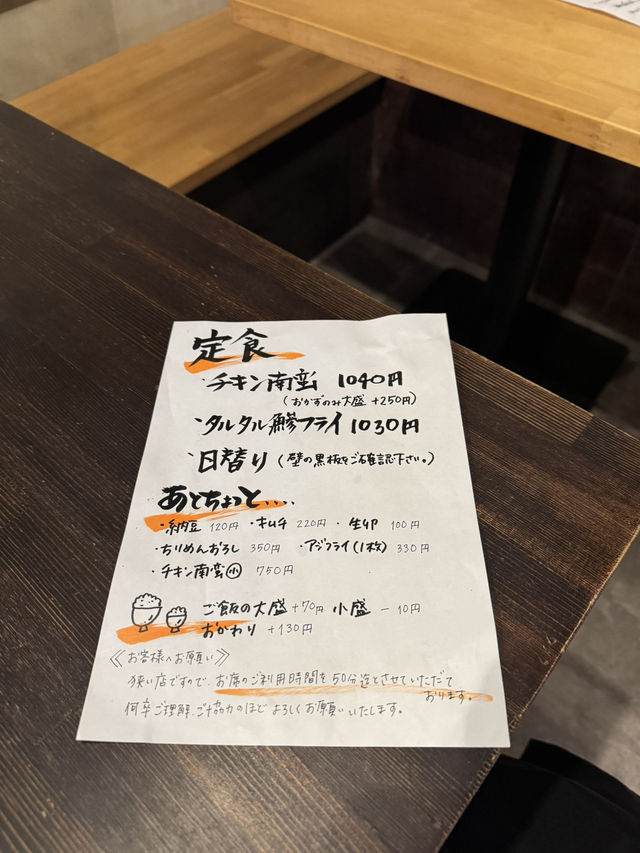 定食
・チキン南蛮 1040円
(おかずのみ大盛 +250円)
・タルタル鯵フライ 1030円
・日替り (壁の黒板をご確認下さい。)
あとちょっと....
・納豆 120円 ・キムチ 220円 ・生卵 100円
・ちりめんおろし 350円 ・アジフライ(1枚) 330円
・チキン南蛮小 750円
ご飯の大盛 +70円 小盛 -10円
おかわり +130円
《お客様へお願い》
狭い店ですので、お席のご利用時間を50分迄とさせていただいて
おります。
何卒ご理解、ご協力のほど よろしくお願いいたします。